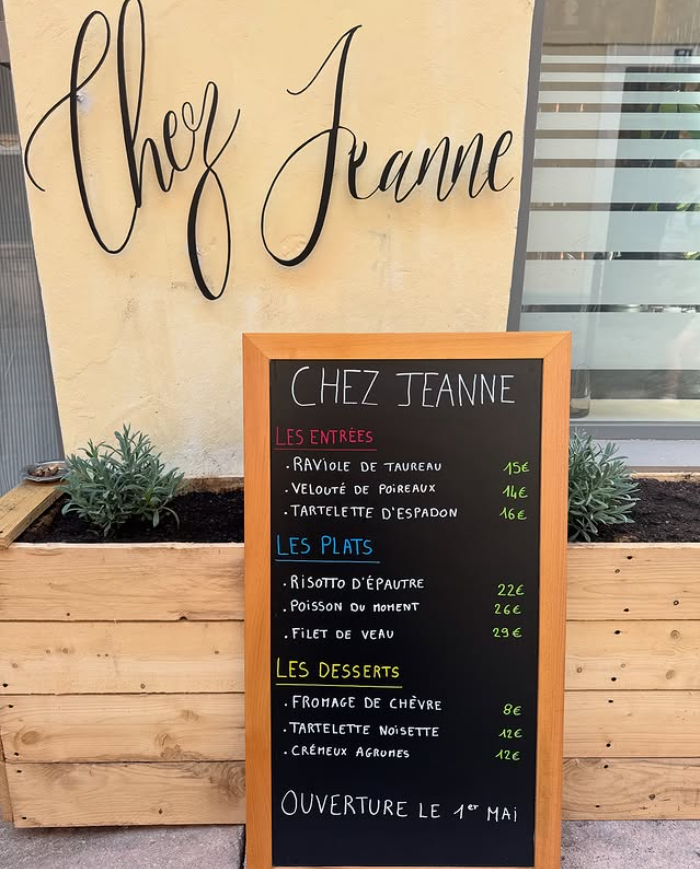 Chez Jeanne
CHEZ JEANNE
LES ENTRÉES
. RAVIOLE DE TAUREAU 15€
. VELOUTÉ DE POIREAUX 14€
. TARTELETTE D'ESPADON 16€
LES PLATS
. RISOTTO D'ÉPAUTRE 22€
. POISSON DU MOMENT 26€
. FILET DE VEAU 29€
LES DESSERTS
. FROMAGE DE CHÈVRE 8€
. TARTELETTE NOISETTE 12€
. CRÉMEUX AGRUMES 12€
OUVERTURE LE 1er MAI